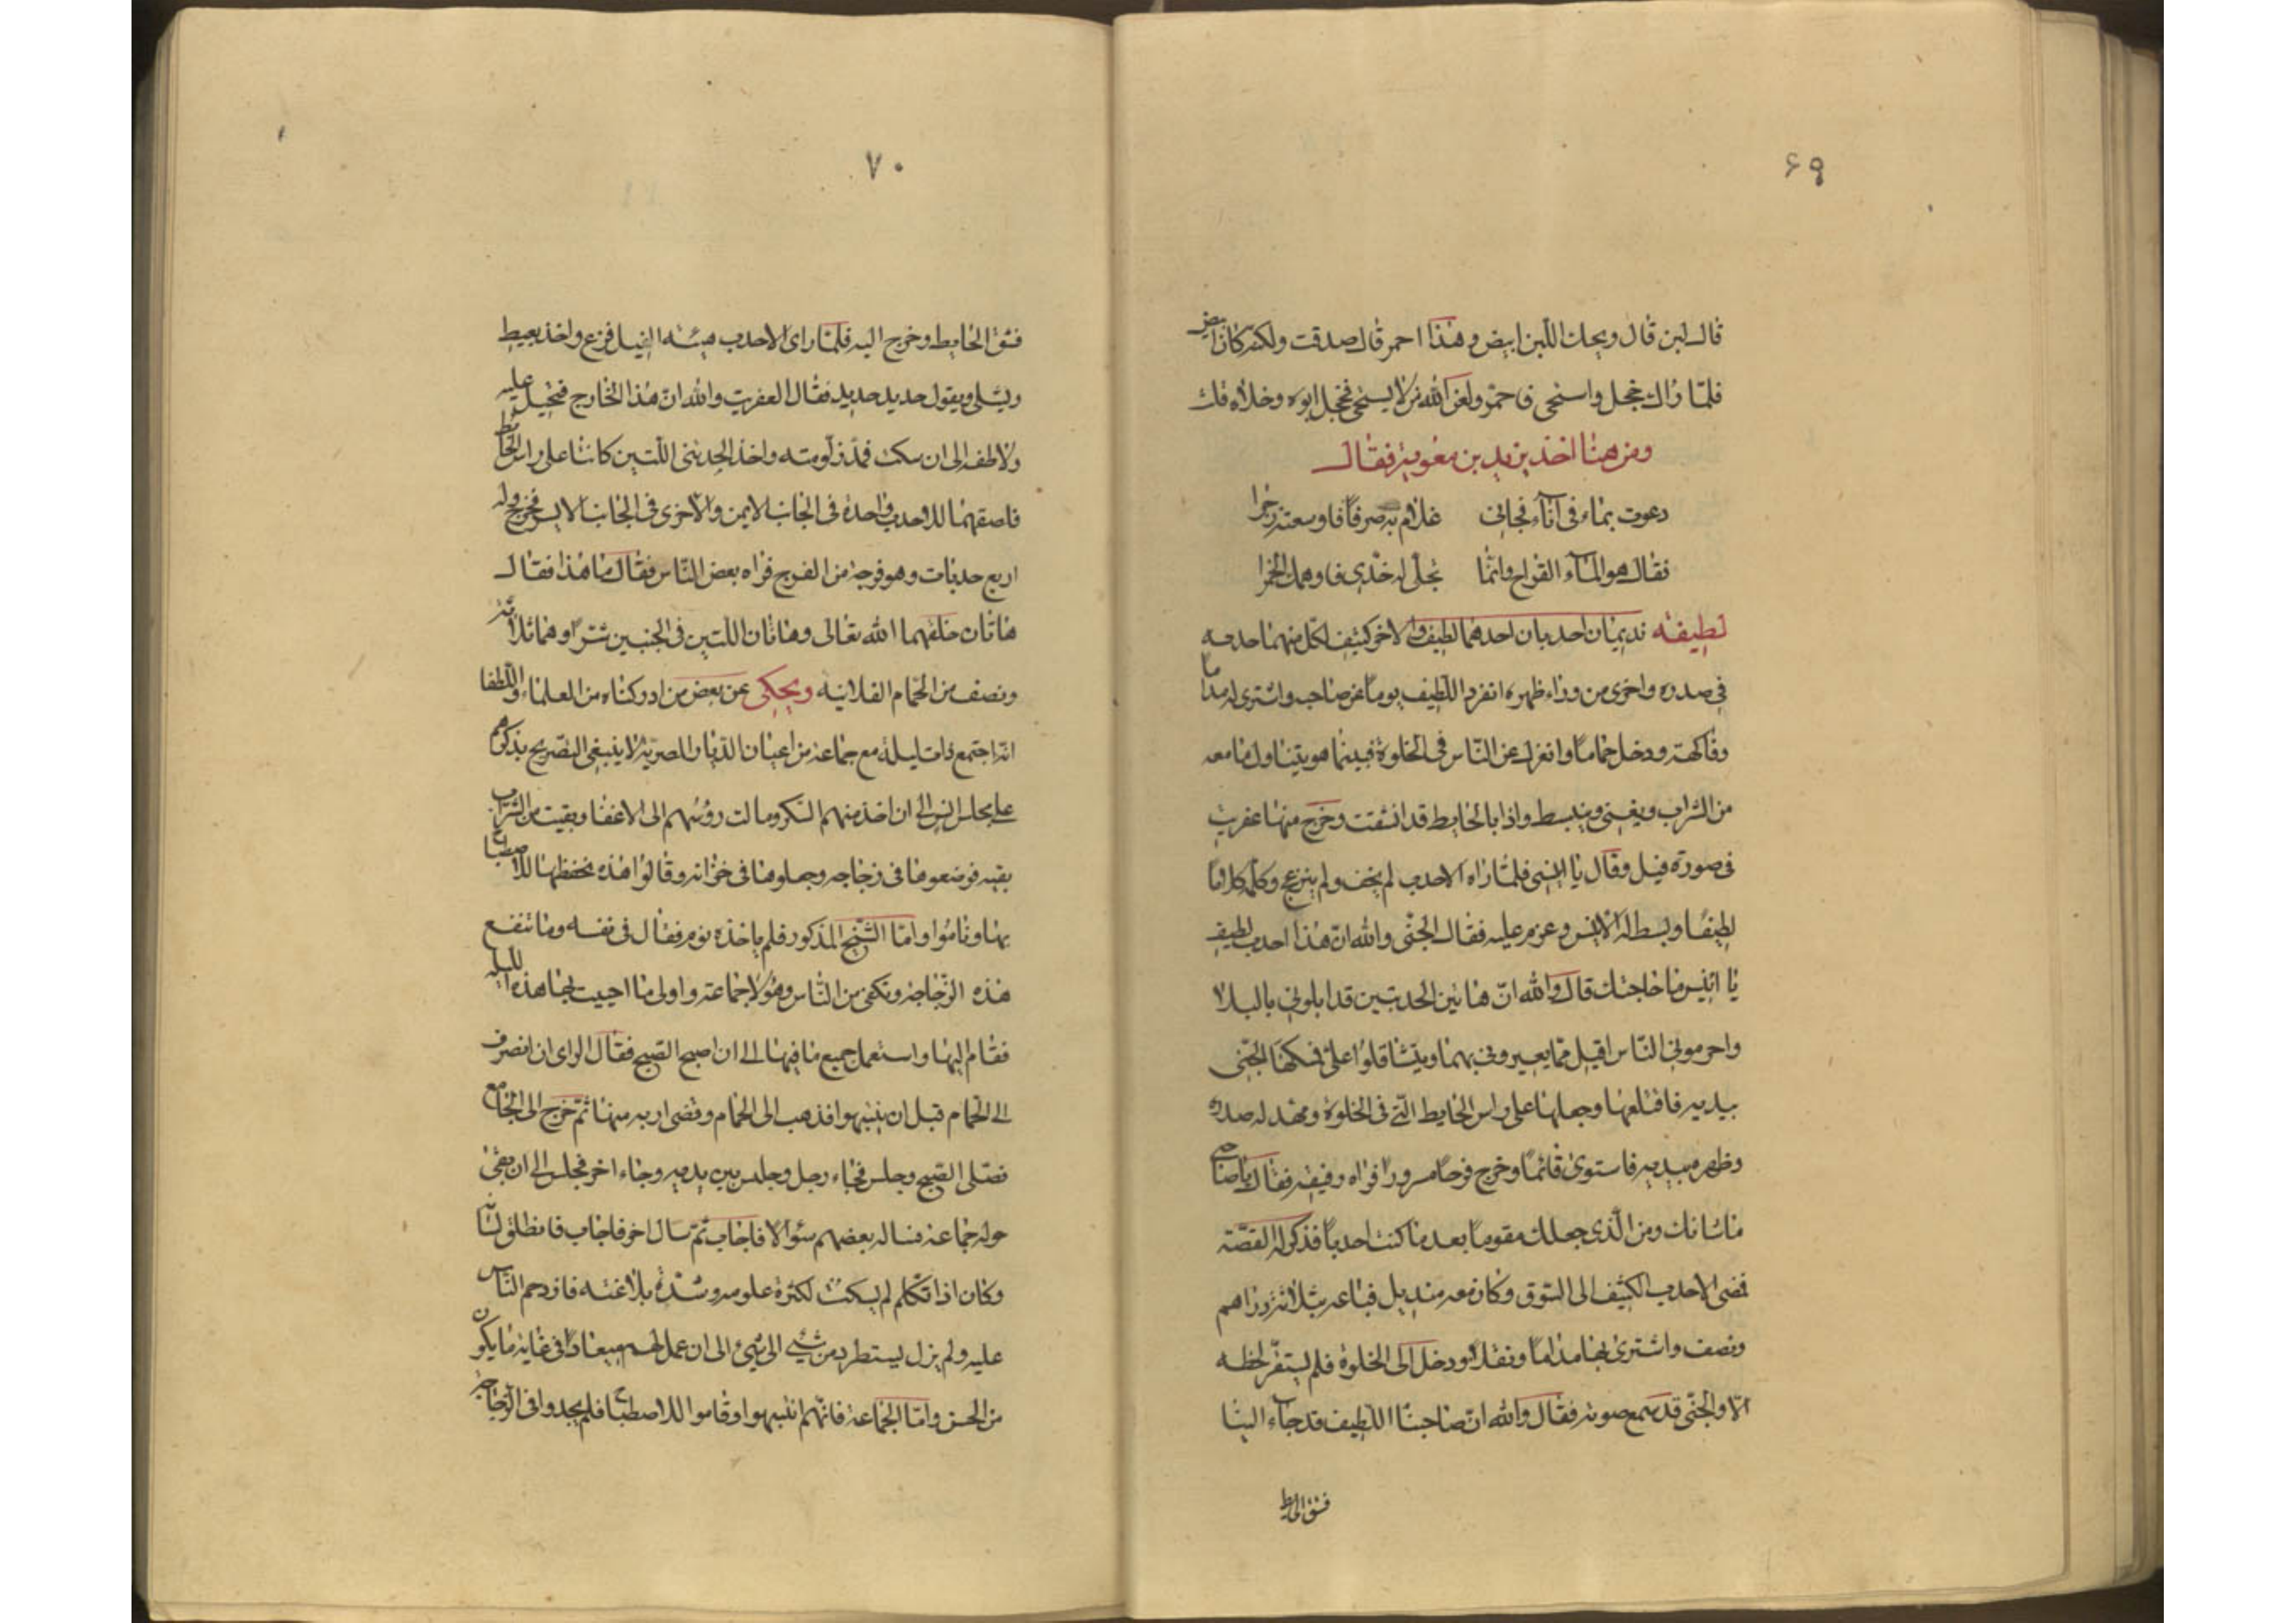 ۶۹
قال لبن قال ويحك اللّبن ابيض وهذا احمر قال صدقت ولكنه كان ابيض
فلمّا راك خجل واستحى فاحمرّ ولعن الله من لا يستحي فخجل ابوه وخلاه
ومن هنا اخذ يزيد بن معوية فقال
دعوت بماء فى اناء فجاءنى غلام به صرفا فاوسعته زجرا
فقال هو الماء القراح وانّما تجلّى له خدّى فاوهمك الخمرا
لطيفة نديمان احدبان احدهما لطيف والاخر كثيف لكلّ منهما حدبه
فى صدره واخرى من وراء ظهره انفرد اللّطيف يوماً عن صاحبه واشترى له مداما
وفاكهة ودخل حماماً وانعزل عن النّاس فى الخلوة فبينما هو يتناول ما معه
من الشراب ويغنى وينبسط واذا بالحايط قد انشقت وخرج منها عفريت
فى صورة فيل وقال يا انسى فلمّا راه الاحدب لم يخف ولم ينزعج وكلّمه كلاماً
لطيفًا وبسط له الانس وعزم عليه فقال الجنّى والله انّ هذا احدب لطيف
يا انيس ما حاجتك قال والله انّ هاتين الحدبتين قد ابلونى بالبلا
واحرمونى النّاس اقبل ممّا يعيرونى بهما ويتثاقلوا علىّ فسكهنا الجنّى
بيديه فاقتلعها وجعلها على راس الحايط الّتى فى الخلوة ومهّد له صدره
وظهره بيديه فاستوى قائماً وخرج فرحاً مسروراً فراه رفيقه فقال يا صاحبى
ما شانك ومن الّذى جعلك مقوماً بعد ما كنت احدباً فذكر له القصّة
فمضى الاحدب الكثيف الى السّوق وكان معه منديل فباعه بثلاثة دراهم
ونصف واشترى بها مداماً ونقلاً ودخل الى الخلوة فلم يستقرّ لحظه
الّا والجنّى قد سمع صوته فقال والله انّ صاحبنا اللّطيف قد جاء الينا
فشق الحايط
۷۰
فشق الحايط وخرج اليه فلمّا راى الاحدب هيئة الفيل فزع واخذ يعيط
ويقول حديد حديد فقال العفريت والله انّ هذا الخارج فتحيل عليه
ولاطفه الى ان سكت واخذ الحدبتى اللّتين كانتا على راس الحايط
فاصقهما للاحدب واحدة فى الجانب الايمن والاخرى فى الجانب الايسر فخرج وله
اربع حدبات وهو فرجة من الفرج فراه بعض النّاس فقال ما هذا فقال
هاتان خلقهما الله تعالى وهاتان اللّتين فى الجنبين بثلاثة
ونصف من الحمام الفلانيه ويحكى عن بعض من ادركناه من العلماء واللّطفا
انّه اجتمع ذات ليلة مع جماعة من اعيان الدّيار المصريّة لا ينبغى التّصريح بذكرهم
على مجلس انس الى ان اخذ منهم السّكر ومالت رؤسهم الى الاغفا وبقيت من الشراب
بقيه فوضعوها فى زجاجه وجعلوها فى خزانه وقالوا هذه نحفظها للاصطباح
بها وناموا وامّا الشّيخ المذكور فلم ياخذه نوم فقال فى نفسه وما تنفع
هذه الزّجاجة وتكفى من النّاس وهؤلاء جماعة واولى ما احييت بها هذه الليله
فقام اليها واستعمل جميع ما فيها الى ان اصبح الصّبح فقال الراى ان انصرف
الى الحمام قبل ان ينتبهوا فذهب الى الحمام وقضى اربه منها ثمّ خرج الى الجامع
فصلّى الصّبح وجلس فجاء رجل وجلس بين يديه وجاء اخر فجلس الى ان بقى
حوله جماعة فساله بعضهم سؤالا فاجاب ثمّ سال اخر فاجاب فانطلق لسانه
وكان اذا تكلّم لم يسكت لكثرة علومه وشدّة بلاغته فازدحم النّاس
عليه ولم يزل يستطرد من شئ الى شئ الى ان عمل لهم ميعاداً فى غاية ما يكون
من الحسن وامّا الجماعة فانّهم انتبهوا وقاموا للاصطباح فلم يجدوا فى الزّجاجة